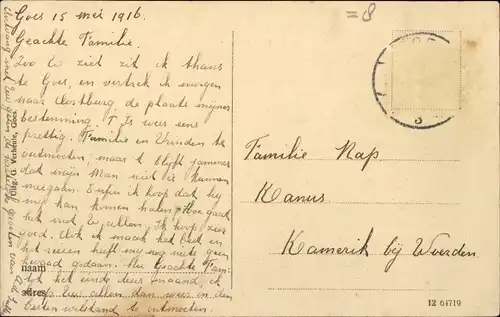 Goes 15 mei 1916.
Geachte Familie.
Zoo U ziet zit ik thans
te Goes, en vertrek ik morgen
naar Oostburg de plaats mijner
bestemming. 't Is weer eens
prettig. Familie en Vrinden te
ontmoeten, maar 't blyft jammer
dat mijn Man niet is kunnen
meegaan. Enfin ik hoop dat hij
mij kan komen halen. Hoe gaat
het met U allen? Ik hoop zeer
goed. Ook ik maak het best en
het reizen heeft mij nog niets geen
kwaad gedaan. Nu Geachte Fam-
tot het einde der maand, ik
hoop U allen dan weer in den
besten welstand te ontmoeten.
naam
adres
Uitg. G. Goes
=8
Familie Nap
Kanis
Kamerik bij Woerden
12 64719